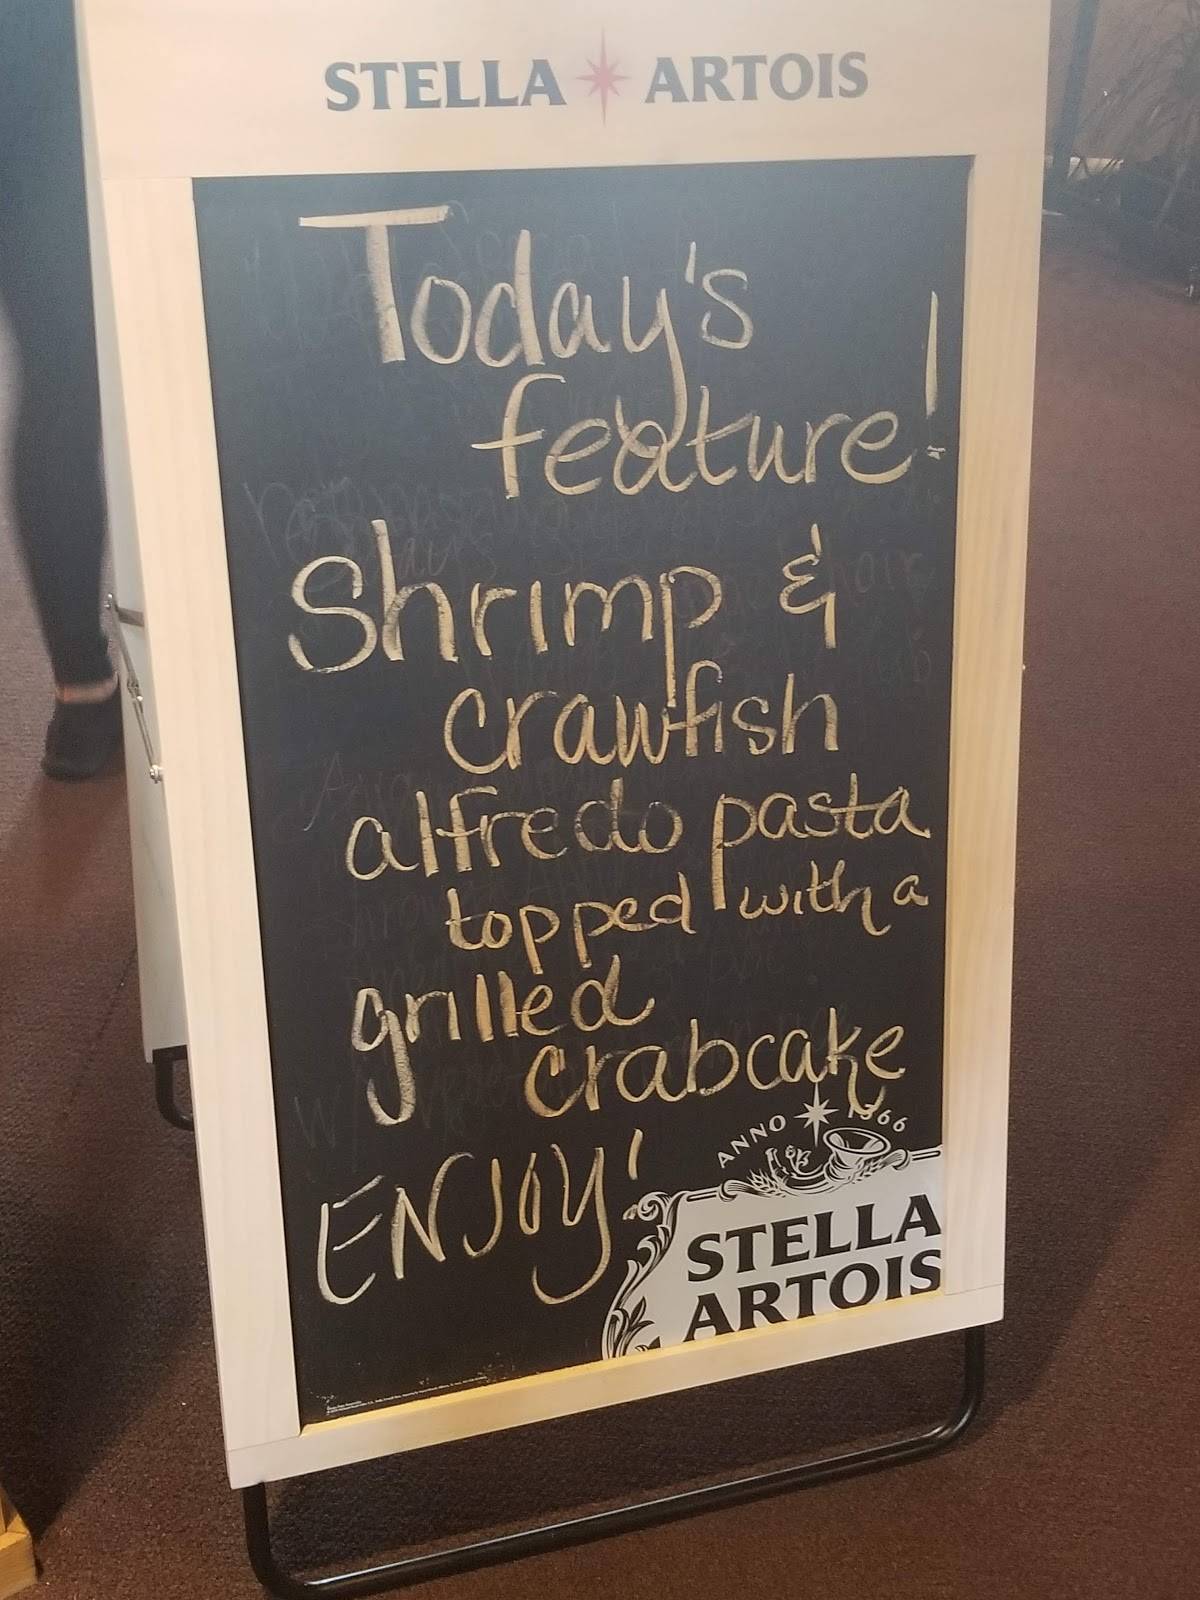 STELLA ARTOIS
Today's
feature!
Shrimp &
crawfish
alfredo pasta
topped with a
grilled
crabcake
ENJOY!
ANNO 1366
STELLA
ARTOIS